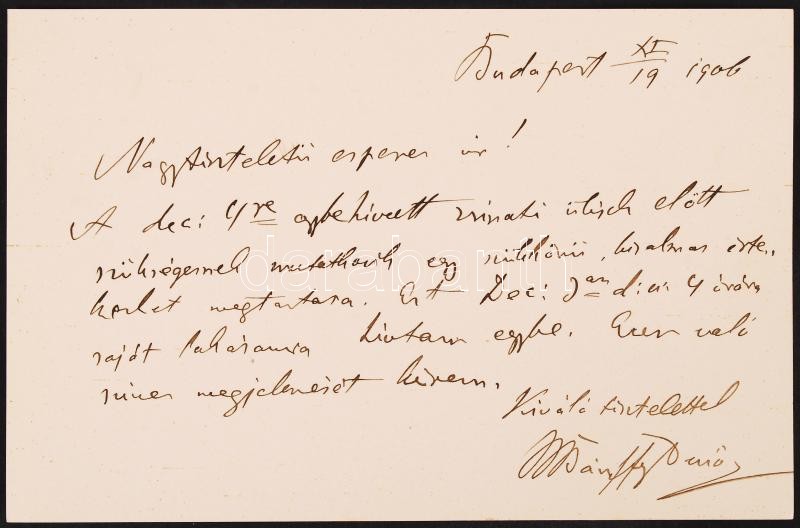 Budapest XI/19 1906
Nagytiszteletű esperes úr!
A dec: 4re egybehívott zsinati ülések előtt
szükségesnek mutatkozik egy szűkkörű, bizalmas érte-
kezlet megtartása. Ezt Dec: 3án d: u: 4 órára
saját lakásomra hívtam egybe. Ezen való
szíves megjelenését kérem.
Kiváló tisztelettel
Bánffy Dezső
darabanth